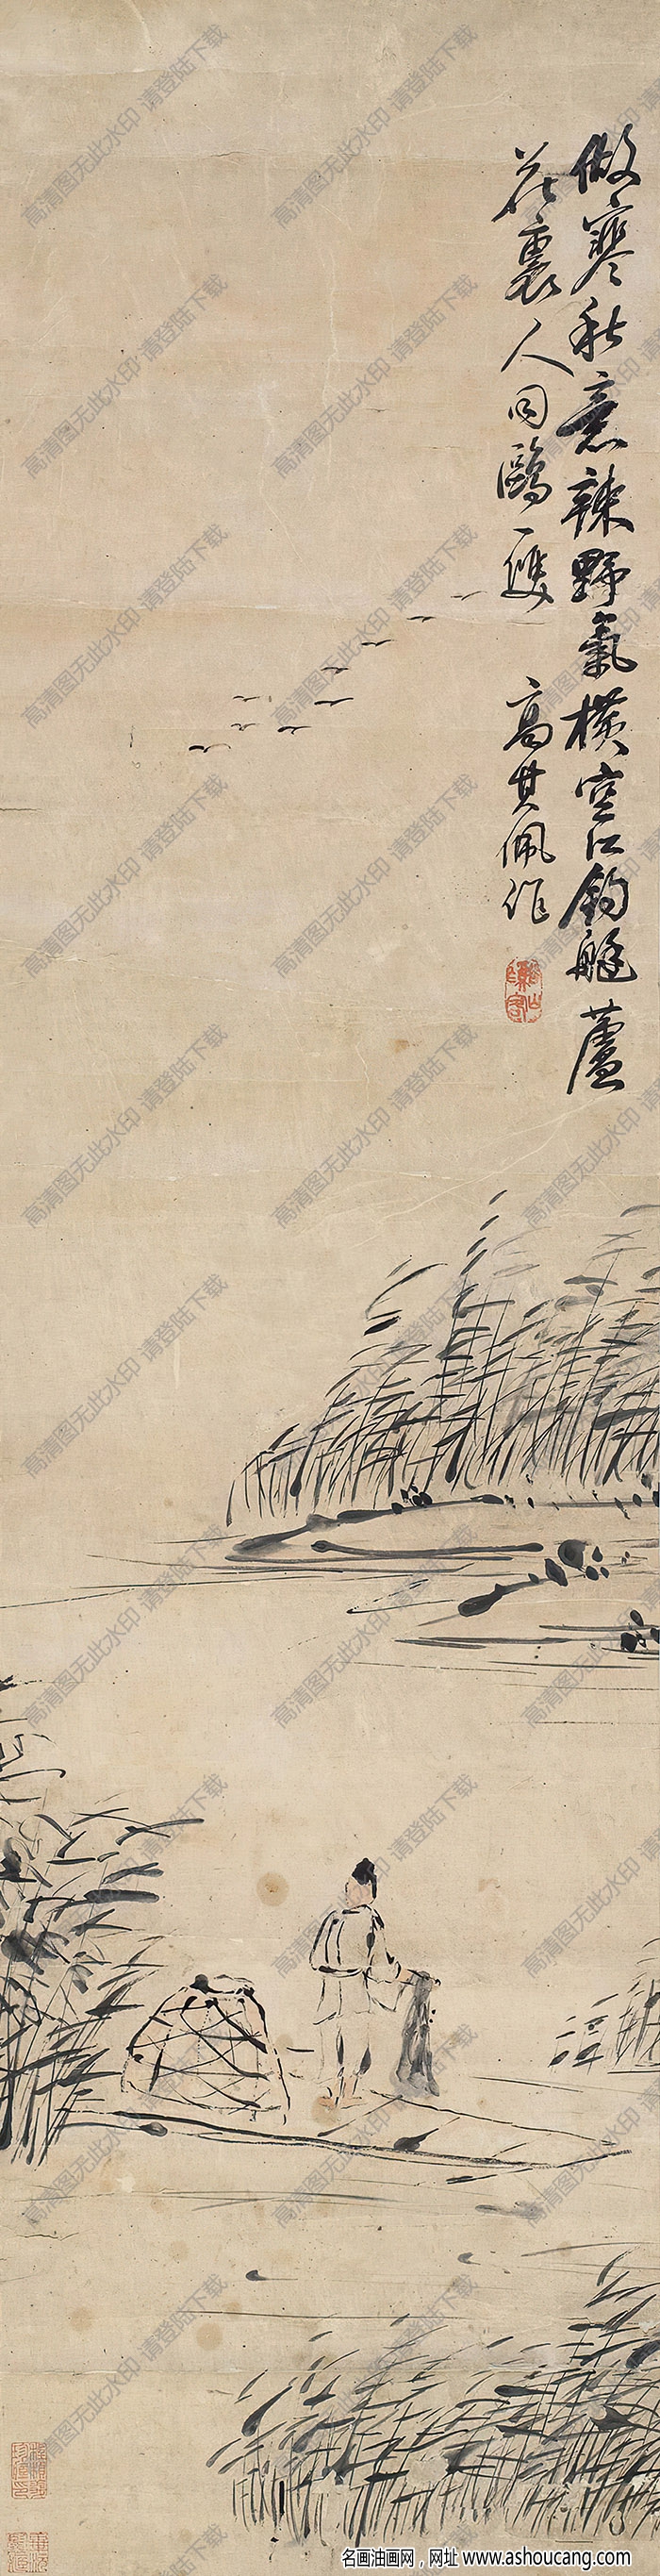 傲寒秋意辣野氣橫空江釣艇蘆
花裏人同鷗一雙
高其佩作
高清图无此水印 请登陆下载
名画油画网，网址 www.ashoucang.com